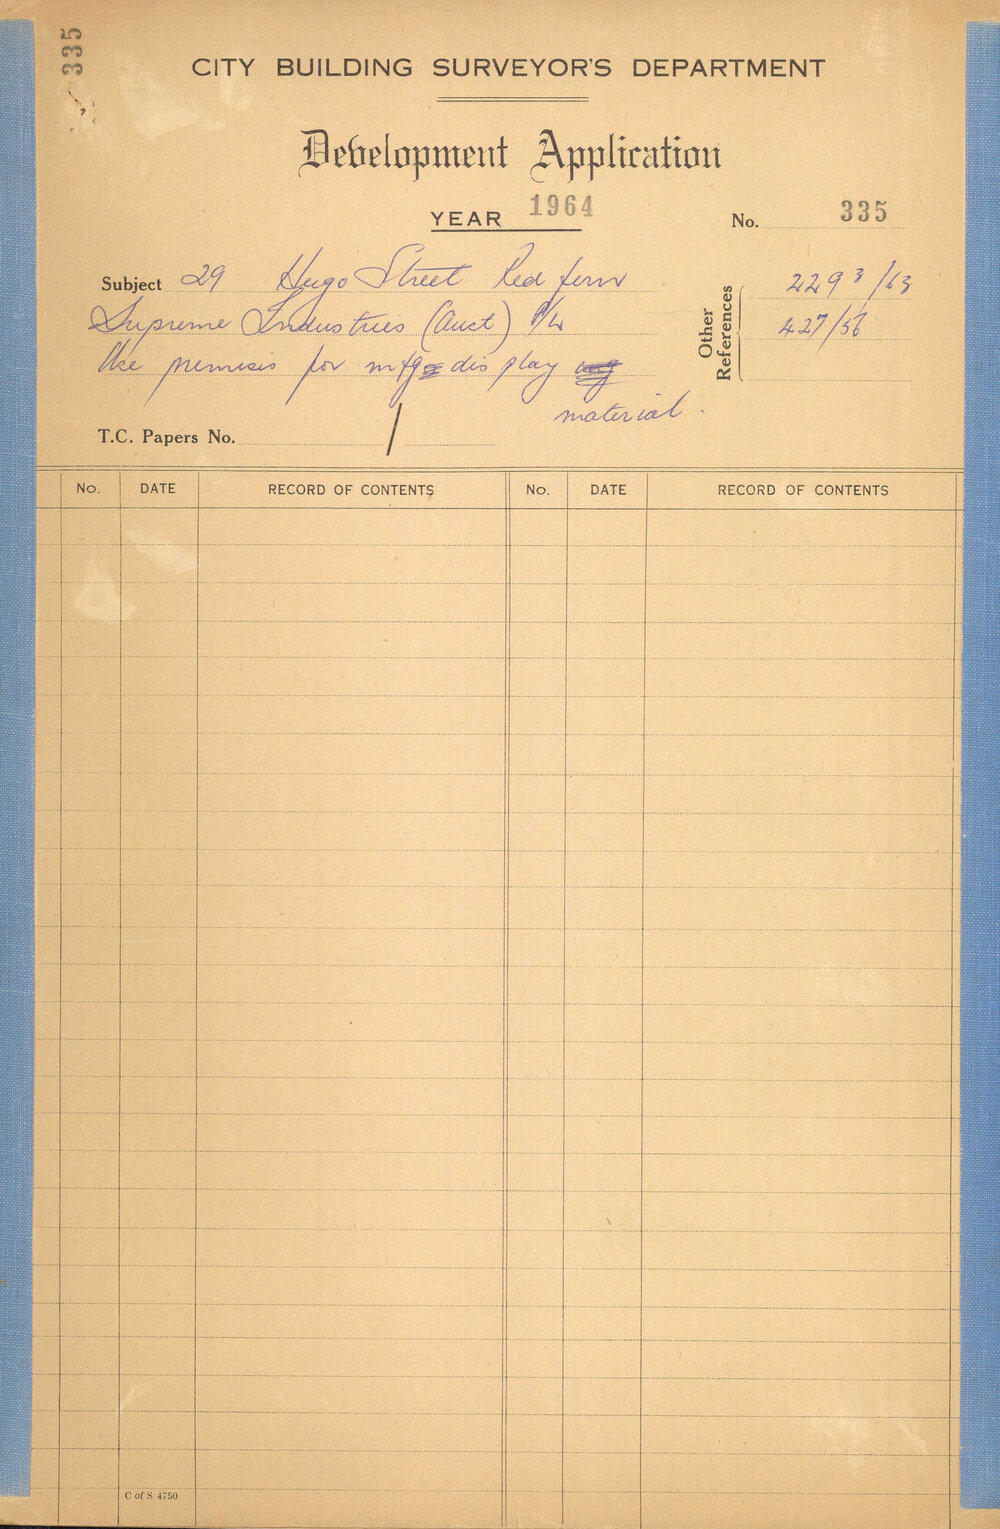 335
CITY BUILDING SURVEYOR'S DEPARTMENT
Development Application
YEAR 1964
No. 335
Subject 29 Hugo Street Redfern
Supreme Industries (Aust) P/L
Use premises for mfg display
material.
Other References
2293/63
427/56
T.C. Papers No. /
No. DATE RECORD OF CONTENTS No. DATE RECORD OF CONTENTS
C of S 4750